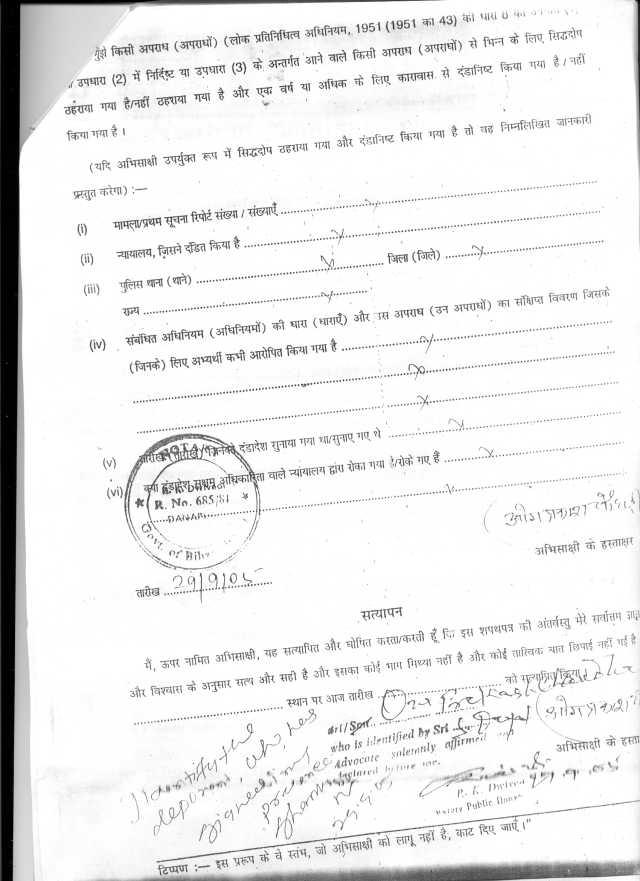 किसी अपराध (अपराधों) (लोक प्रतिनिधित्व अधिनियम, 1951 (1951 का 43) की धारा 8
उपधारा (2) में निर्दिष्ट या उपधारा (3) के अन्तर्गत आने वाले किसी अपराध (अपराधों) से भिन्न के लिए सिद्धदोष
ठहराया गया है/नहीं ठहराया गया है और एक वर्ष या अधिक के लिए कारावास से दंडानिष्ट किया गया है / नहीं
किया गया है ।
(यदि अभिसाक्षी उपर्युक्त रूप में सिद्धदोष ठहराया गया और दंडानिष्ट किया गया है तो वह निम्नलिखित जानकारी
प्रस्तुत करेगा) :—
(i) मामला/प्रथम सूचना रिपोर्ट संख्या / संख्याएँ
(ii) न्यायालय, जिसने दंडित किया है
(iii) पुलिस थाना (थाने) जिला (जिले)
राज्य
(iv) संबंधित अधिनियम (अधिनियमों) की धारा (धाराएँ) और उस अपराध (उन अपराधों) का संक्षिप्त विवरण जिसके
(जिनके) लिए अभ्यर्थी कभी आरोपित किया गया है
(v) तारीख (तारीखें) जिनको दंडादेश सुनाया गया था/सुनाए गए थे
(vi) क्या दंडादेश सक्षम अधिकारिता वाले न्यायालय द्वारा रोका गया है/रोके गए हैं
NOTARY
R. No. 685/81
Govt. of Bihar
अभिसाक्षी के हस्ताक्षर
तारीख 29/9/05
सत्यापन
मैं, ऊपर नामित अभिसाक्षी, यह सत्यापित और घोषित करता/करती हूँ कि इस शपथपत्र की अंतर्वस्तु मेरे सर्वोत्तम
और विश्वास के अनुसार सत्य और सही है और इसका कोई भाग मिथ्या नहीं है और कोई तात्विक बात छिपाई नहीं गई है
स्थान पर आज तारीख को सत्यापित किया
Om Prakash
who is identified by Sri
Advocate solemnly affirmed and
declared before me.
I identify the
deponent, who has
presence
अभिसाक्षी के
P. K. Dwivedi
Notary Public
टिप्पण :— इस प्ररूप के वे स्तंभ, जो अभिसाक्षी को लागू नहीं है, काट दिए जाएँ ।"